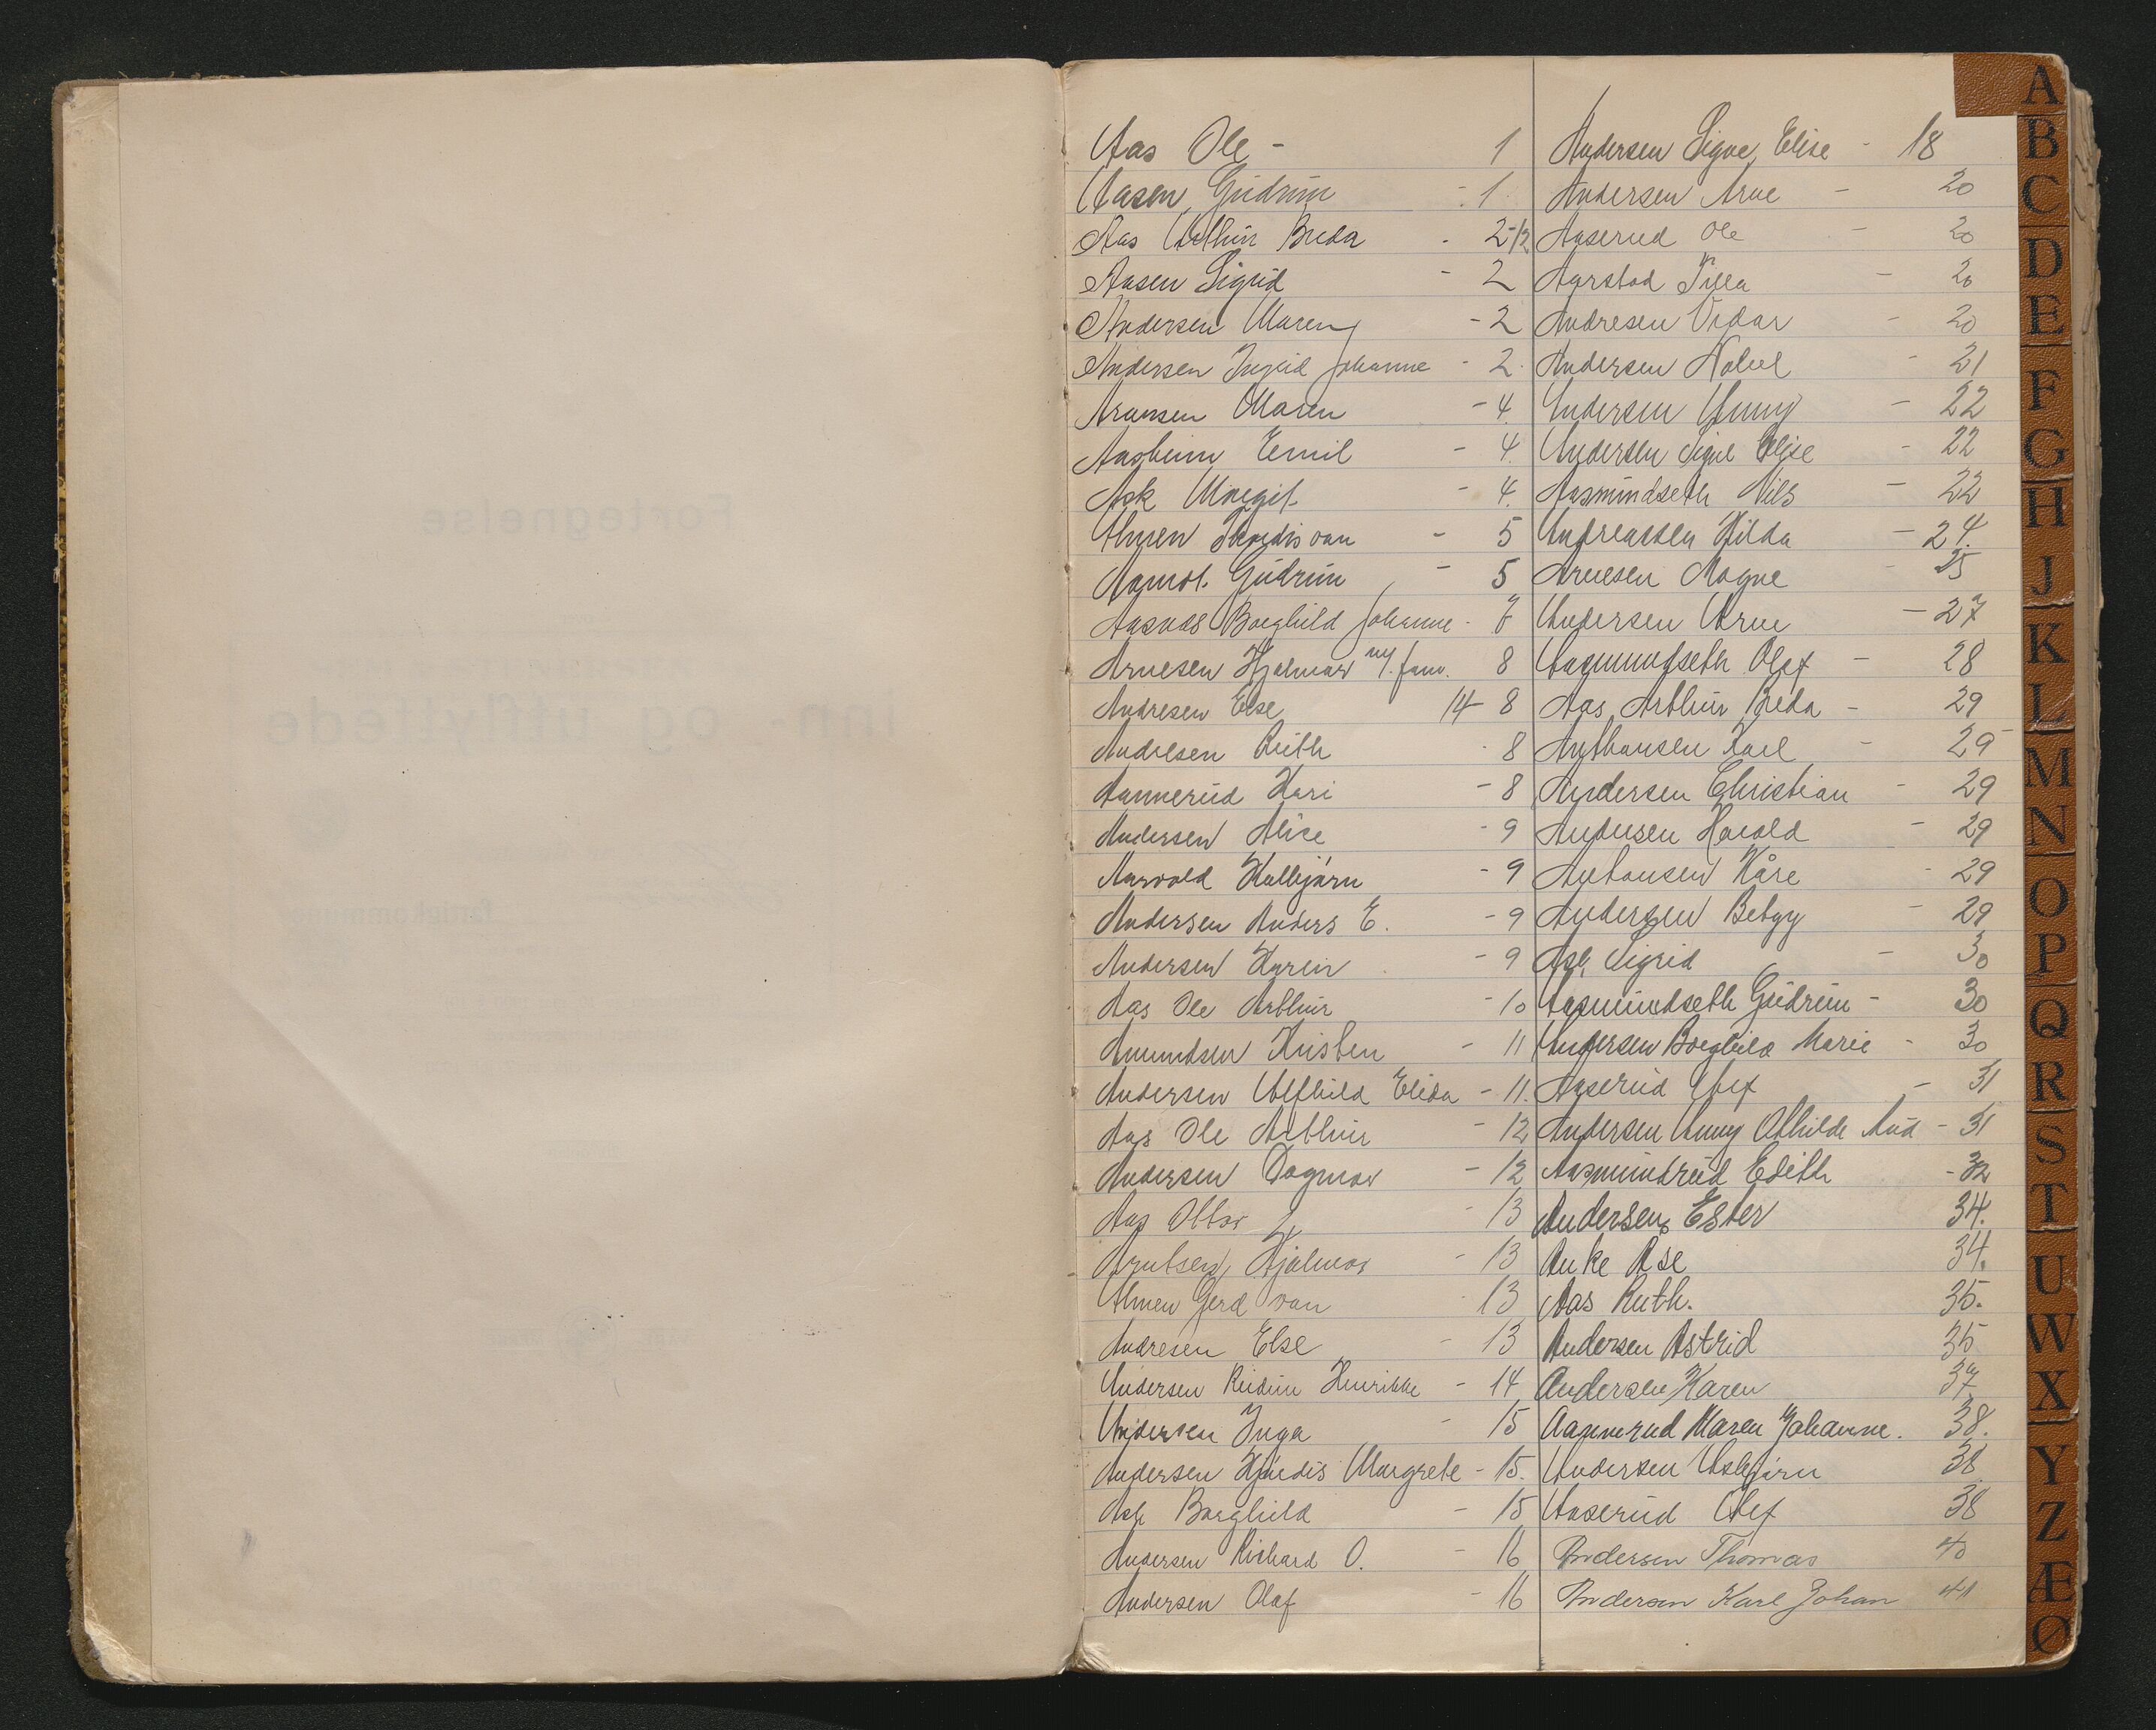 Aas Ole - 1
Aasen, Gudrun - 1
Aas Arthur Breda - 2-12
Aasen Sigrid - 2
Andersen Maren - 2
Andersen Ingrid Johanne - 2
Aronsen Maren - 4.
Aasheim Emil - 4.
Ask Margit - 4.
Almen van - 5
Aamot Gudrun - 5
Aasnæs Borghild Johanne - 7
Arnesen Hjalmar m/ fam. 8
Andresen Else 14 - 8
Andresen Ruth - 8
Aannerud Kari - 8
Andersen Alise - 9
Aarvold - 9
Andersen Anders E. - 9
Andersen Karin - 9
Aas Ole Arthur - 10
Amundsen Kristen - 11
Andersen Alfhild Elida - 11.
Aas Ole Arthur - 12
Andersen Dagmar - 12
Aas Ottar - 13
Arntsen, Hjalmar - 13
Almen Gerd van - 13
Andresen Else - 13
Andersen Reidun Henrikke - 14
Andersen Inga - 15
Andersen Hjørdis Margrete - 15.
Ask Borghild - 15
Andersen Richard O. - 16
Andersen Olaf - 16
Andersen Signe, Elise - 18
Andersen Arne - 20
Aaserud Ole - 20
Aarstad Tilla - 20
Andresen Vidar - 20
Andersen - 21
Andersen Anny - 22
Andersen Signe Elise - 22
Aasmundseth Nils - 22
Andreassen Hilda - 24.
Arnesen Magne - 25
Andersen Arne - 27
Aasmundseth Olaf - 28
Aas, Arthur Breda - 29
Anthonsen Karl - 29
Andersen Christian - 29
Andersen Harald - 29
Antonsen Kåre - 29
Andersen Betzy - 29
Ask Sigrid - 30
Aasmundseth Gudrun - 30
Andersen Borghild Marie - 30
Aaserud Olaf - 31
Andersen Anny Othilde Aud - 31
Aasmundrud Edith - 32
Andersen, Ester 34.
Anke Åse 34.
Aas Ruth. 35.
Andersen Astrid 35
Andersen Karen 37
Aannerud Maren Johanne. 38.
Andersen Asbjørn 38
Aaserud Olaf 38
Andersen Thomas 40
Andersen Karl Johan 41
A
B
C
D
E
F
G
H
J
K
L
M
N
O
P
Q
R
S
T
U
W
X
Y
Z
Æ
Ø